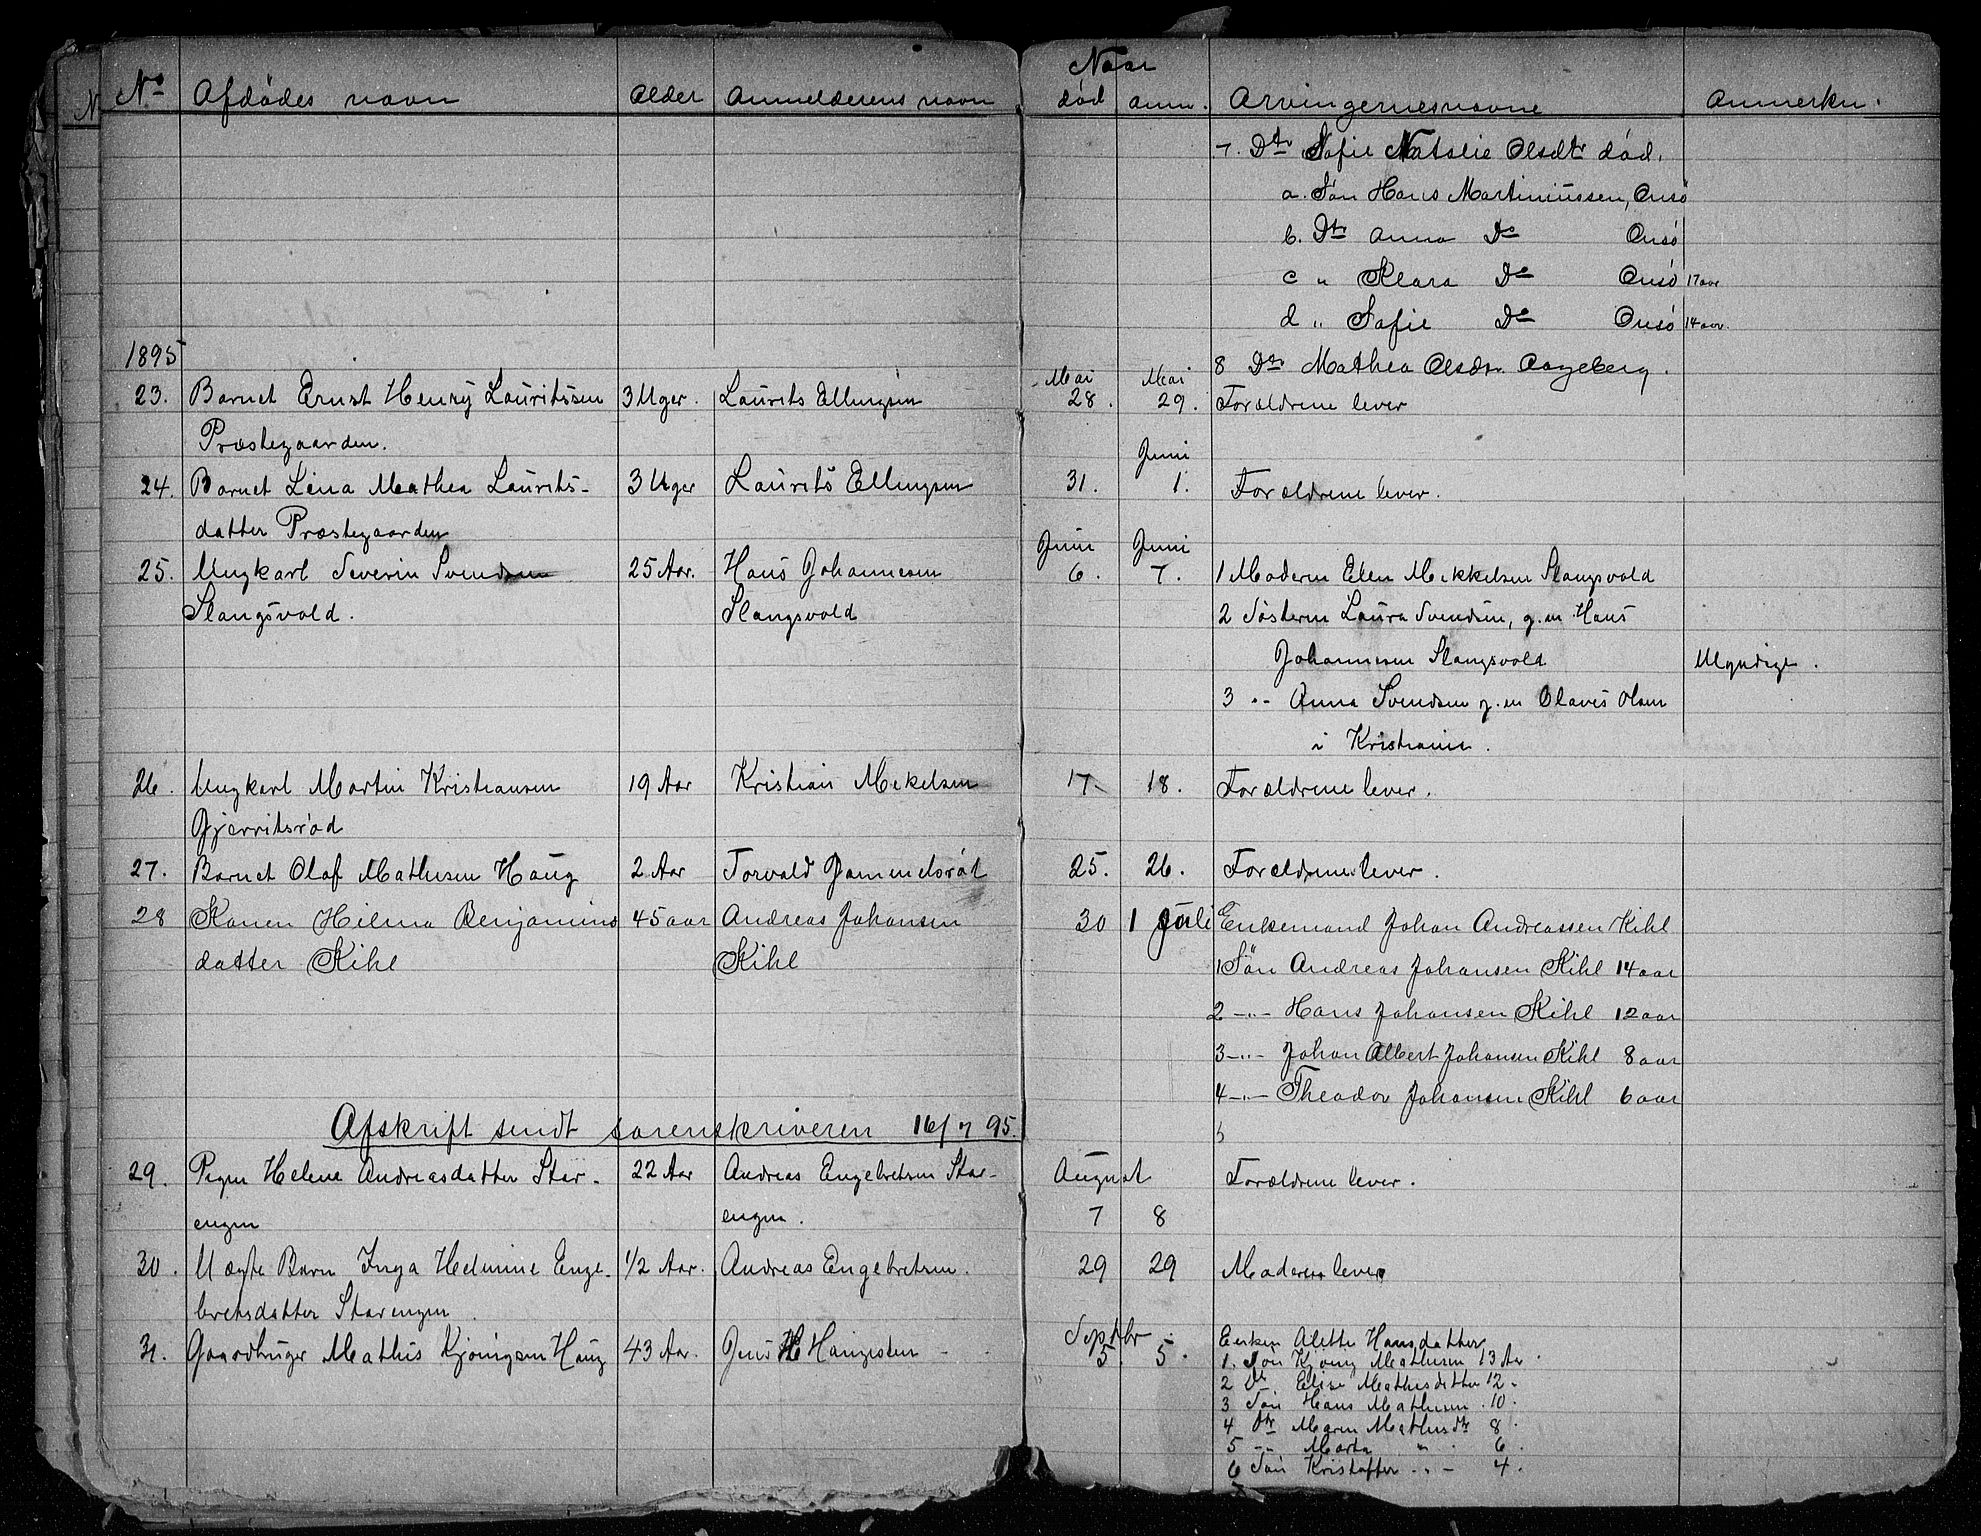 No Afdødes navn Alder Anmelderens navn Naar død anm. Arvingernes navne Anmerkn.
7. Dtr Sofie Natalie Olsdtr død.
a. Søn Hans Martiniussen, Onsø
b. Dtr Anna Do Onsø
c " Klara Do Onsø 17 aar
d " Sofie Do Onsø 14 aar.
8 Dtr Mathea Olsdtr Aageberg.
1895
Mai Mai
23. Barnet Ernst Henry Lauritssen 3 Uger. Laurits Ellingsen 28. 29. Forældrene lever
Præstegaarden.
Juni
24. Barnet Lina Mathea Laurits- 3 Uger Laurits Ellingsen 31. 1. Forældrene lever.
datter Præstegaarden
Juni Juni
25. Ungkarl Severin Svendsen 25 Aar. Hans Johannesen 6. 7. 1 Moderen Elen Mekkelsen Slangsvold
Slangsvold. Slangsvold 2 Søsteren Laura Svendsen, g.m Hans
Johannesen Slangsvold Myndige.
3 -"- Anna Svendsen g.m Olaves Olsen
i Kristiania.
26. Ungkarl Martin Kristiansen 19 Aar Kristian Mekelsen 17. 18. Forældrene lever.
Gjerritsrød
27. Barnet Olaf Mathisen Haug 2 Aar Torvald Gammelsrød 25. 26. Forældrene lever.
28 Konen Hilma Benjamins 45 aar Andreas Johansen 30 1 Juli Enkemand Johan Andreassen Kihl
datter Kihl Kihl 1 Søn Andreas Johansen Kihl 14 aar
2 -"- Hans Johansen Kihl 12 aar
3 -"- Johan Albert Johansen Kihl 8 aar
4 -"- Theodor Johansen Kihl 6 aar
Afskrift sendt sorenskriveren 16/7 95.
5
29. Pigen Helene Andreasdatter Stor- 22 Aar Andreas Engebretsen Stor- August Forældrene lever.
engen engen. 7 8
30. Uægte Barn Inga Helmine Enge- 1/2 Aar. Andreas Engebretsen. 29 29 Moderen lever
bretsdatter Storengen
Septbr
31. Gaardbruger Mathis Kjønigsen Haug 43 Aar. Jens H Haugesten 5. 5. Enken Alette Hansdatter
1. Søn Kjønig Mathisen 13 Aar.
2 Dtr. Elise Mathisdatter 12 -
3 Søn Hans Mathisen. 10.
4 Dtr Maren Mathisdtr 8.
5 -"- Marta " . 6.
6 Søn Kristoffer -"- 4.
7